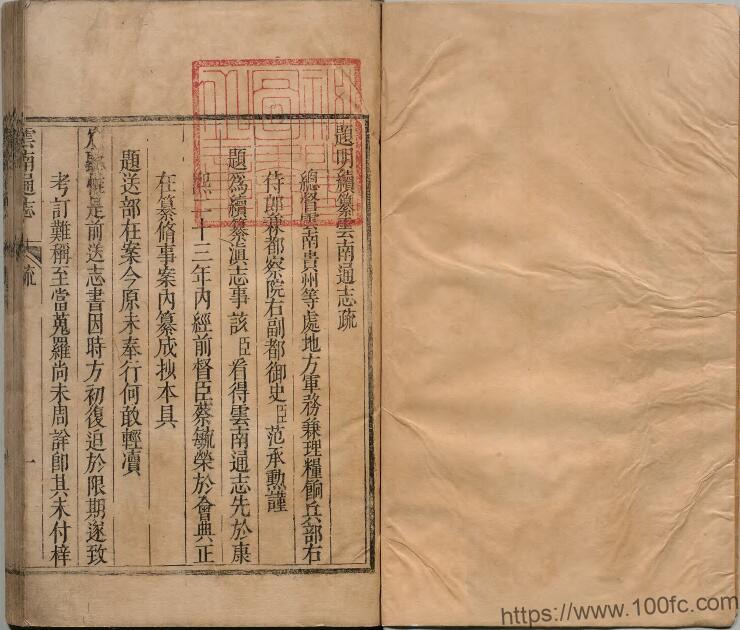 題明續纂雲南通志疏
總督雲南貴州等處地方軍務兼理糧餉兵部右
侍郎兼都察院右副都御史臣范承勲謹
題爲續纂滇志事該臣看得雲南通志先於康
熙二十三年內經前督臣蔡毓榮於會典正
在纂脩事案內纂成抄本具
題送部在案今原未奉行何敢輕瀆
是前送志書因時方初復迫於限期遂致
考訂難稱至當蒐羅尚未周詳卽其未付梓
雲南通志 疏 一
https://www.100fc.com